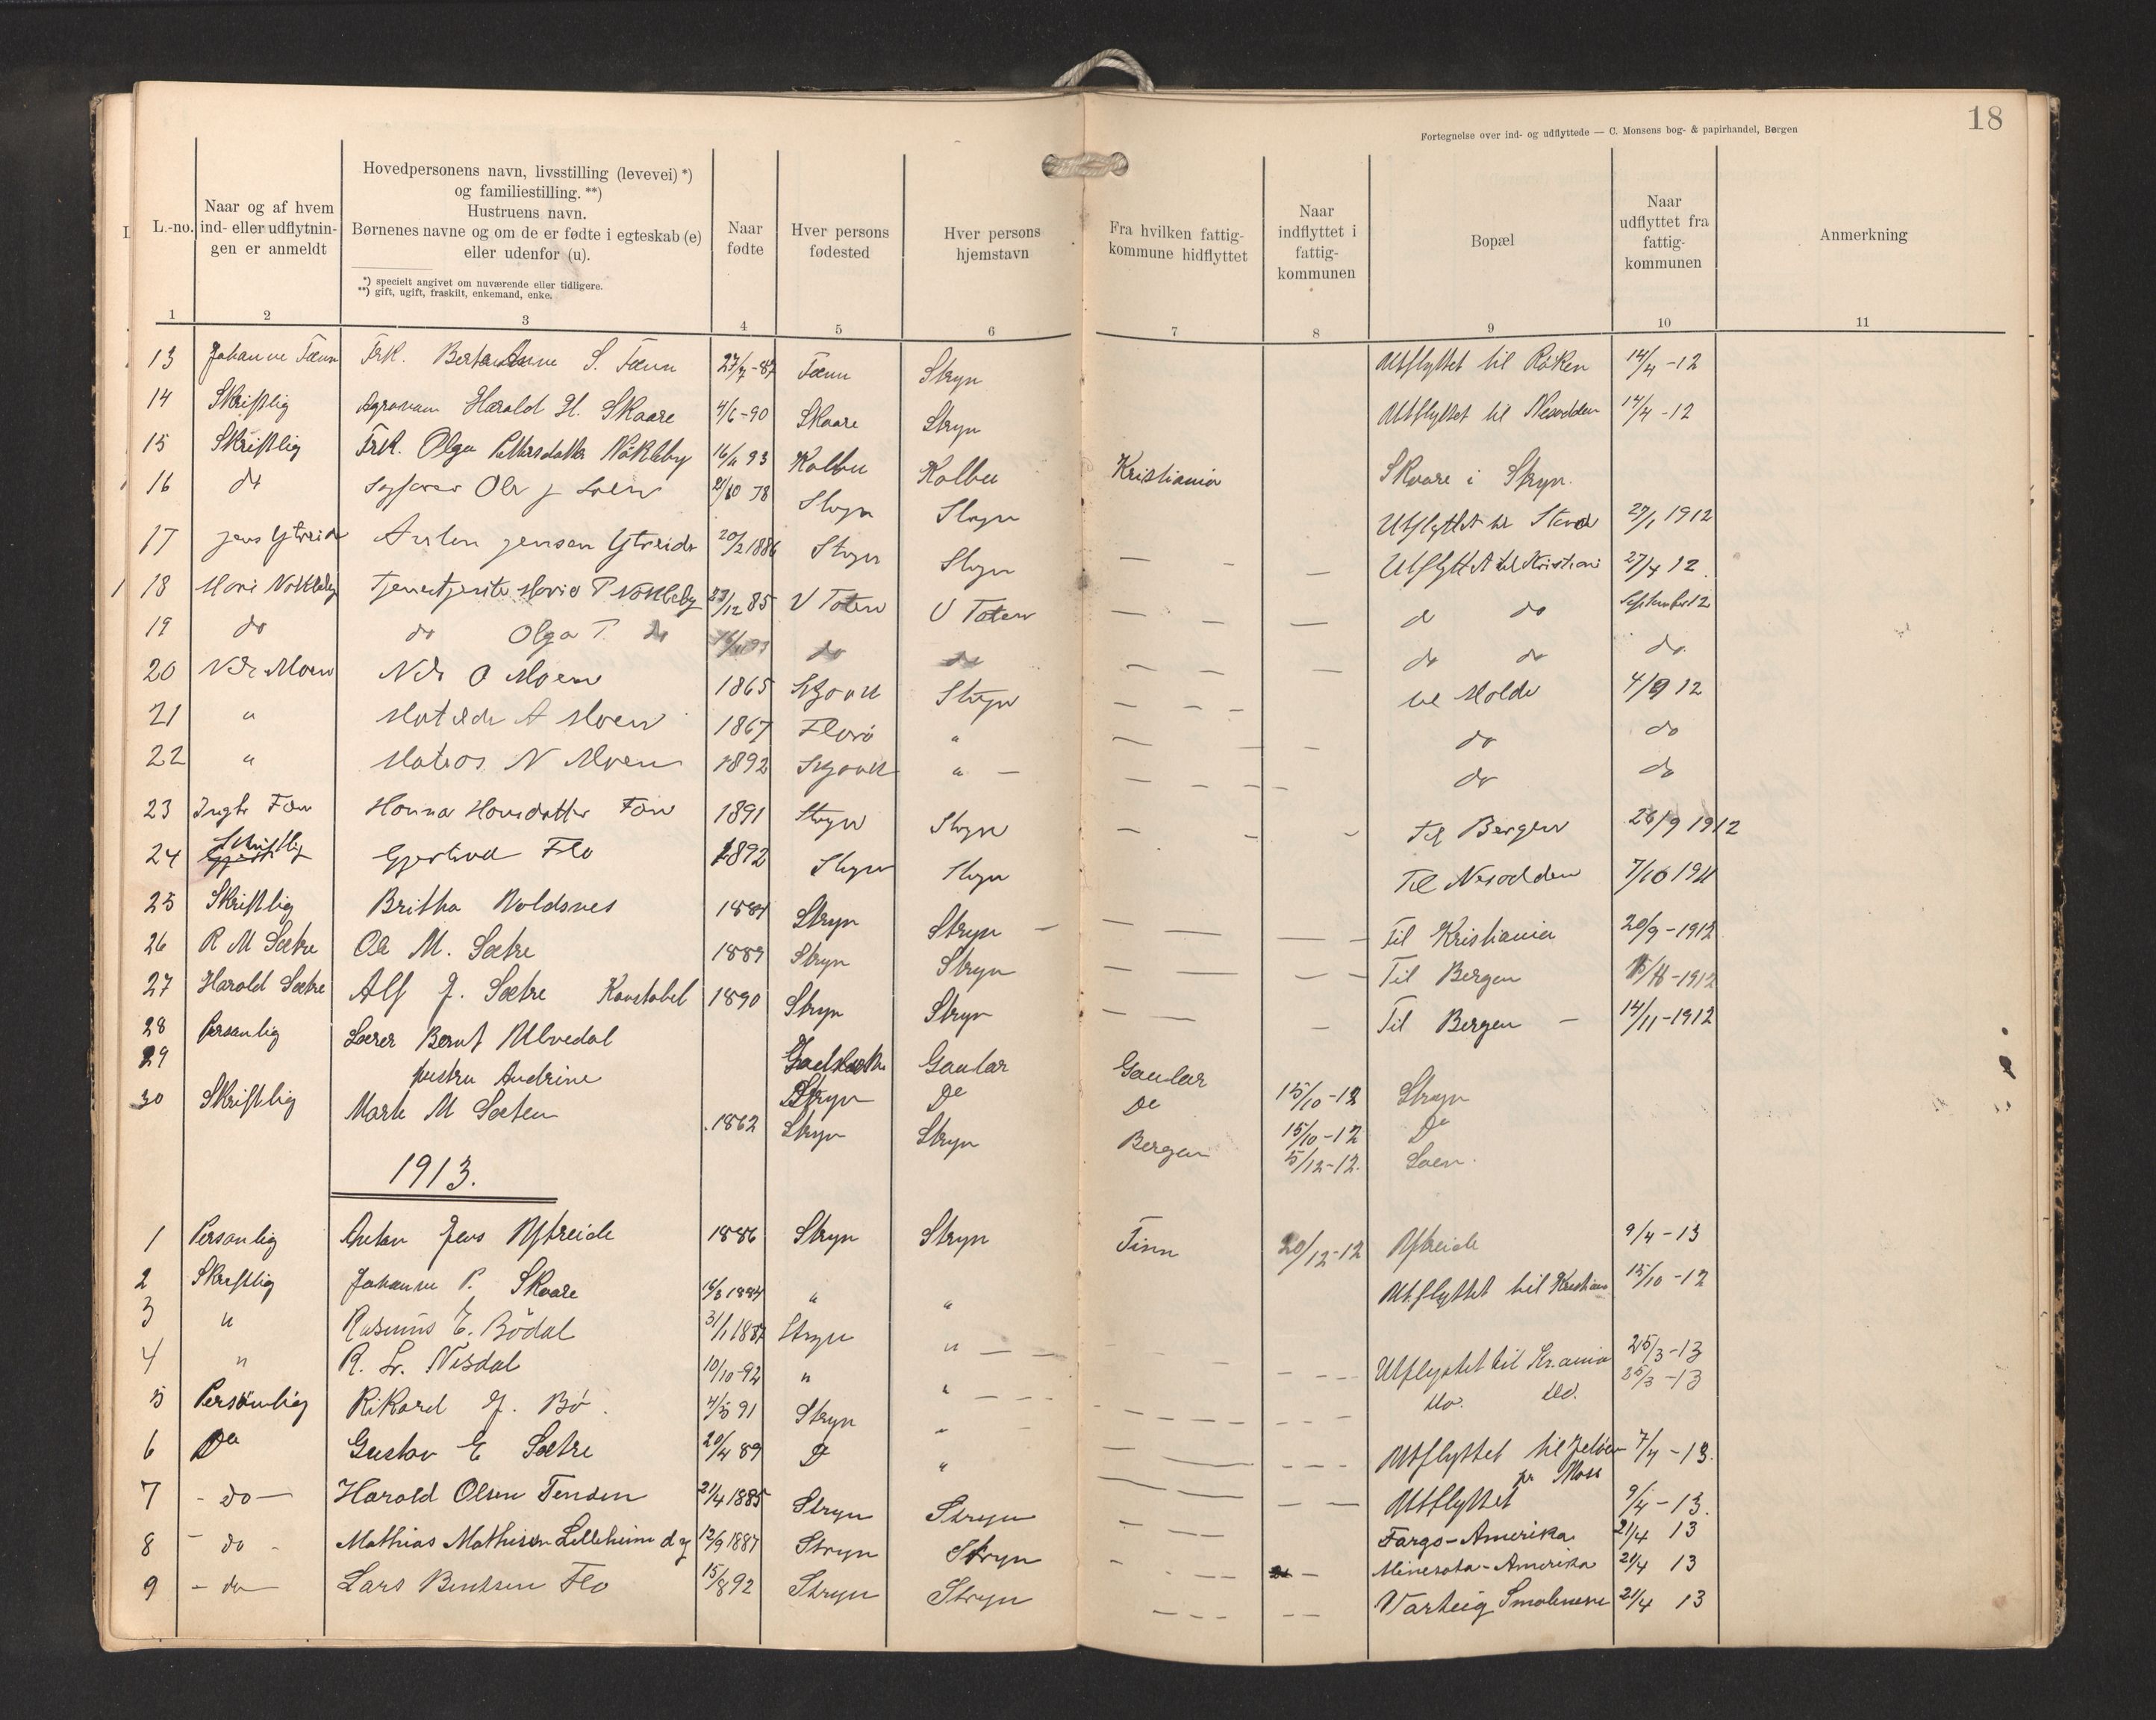 18
Fortegnelse over ind- og udflyttede — C. Monsens bog- & papirhandel, Bergen
L.-no. Naar og af hvem ind- eller udflytningen er anmeldt Hovedpersonens navn, livsstilling (levevei) *) og familiestilling. **) Hustruens navn. Børnenes navne og om de er fødte i egteskab (e) eller udenfor (u). Naar fødte Hver persons fødested Hver persons hjemstavn Fra hvilken fattigkommune hidflyttet Naar indflyttet i fattigkommunen Bopæl Naar udflyttet fra fattigkommunen Anmerkning
*) specielt angivet om nuværende eller tidligere.
**) gift, ugift, fraskilt, enkemand, enke.
1 2 3 4 5 6 7 8 9 10 11
13 Johanne Tænn Frk. S. Tænn Tænn Stryn Utflyttet til Røken 14/4 -12
14 Skriftlig Agronom Harald H. Skaare 4/6-90 Skaare Stryn Utflyttet til Nesodden 14/4 -12
15 Skriftlig Frk. Olga Pettersdatter Nökleby 16/11 93 Kolbu Kolbu Kristiania Skaare i Stryn.
16 do Ole J Loen 21/10 78 Stryn Stryn Utflyttet til 27/1 1912
17 Jens Ytreide Anton Jensen Ytreide 20/2 1886 Stryn Stryn — - — Utflyttet til Kristiani 27/4 12.
18 Marie Nökleby Marie P Nökleby 23/12 85 V Toten V Toten — - — d do September 12
19 do do Olga P. do 16/11 93 do do — - — do do do
20 Nils Moen Nils O Moen 1865 Stryn — - - til Molde 4/9 12
21 " Matilde A Moen 1867 Florö " — — - do do
22 " N Moen 1892 " — — - - do do
23 Tænn Hanna Hansdatter Tænn 1891 Stryn Stryn - - - til Bergen 26/9 1912
24 Skriftlig Gjertrud Flo 1892 Stryn Stryn Til Nesodden 7/10 1911
25 Skriftlig Britha Noldsnes 1884 Stryn Stryn — — — — - Til Kristiania 20/9 -1912
26 R M Sætre Ole M. Sætre 1889 Stryn Stryn — — - - Til Bergen -1912
27 Harald Sætre Alf J. Sætre Konstabel 1890 Stryn Stryn — — - Til Bergen — 14/11-1912
28 Personlig Lærer Bernt Ulvedal Gaular Gaular 15/10-12 Stryn
29 hustru Andrine Stryn Do Do 15/10-12 Do
30 Skriftlig Marte M Sæten 1862 Stryn Stryn Bergen 5/12-12. Loen.
1913.
1 Personlig Anton Jens Ytreide 1886 Stryn Stryn Finn 20/12-12 Ytreide 9/4 -13
2 Skriftlig Johanne P. Skaare " " Utflyttet til Kristiania 15/10 -12
3 " Rasmus E. Bödal 31/1 1887 Stryn " — — Utflyttet til Kr.ania 25/3-13
4 " R. Nesdal 10/10-92 " " - - - do. do. 25/3 -13
5 Personlig Rikard J. Bö. 91 Stryn " Utflyttet til Jelöen pr Moss 7/4 -13.
6 Do Gustav E Sætre 20/4 89 Do " Utflyttet 9/4 -13.
7 - do — Harald Olsen Tenden 21/4 1885 Stryn Stryn - — - Fargo-Amerika 21/4 13
8 - do - Mathias Mathisen Lilleheim d y 12/9 1887 Stryn Stryn Minesota-Amerika 21/4 13
9 - do — Lars Bentsen Flo 15/8 92 Stryn Stryn Varteig Smolenene 21/4 13